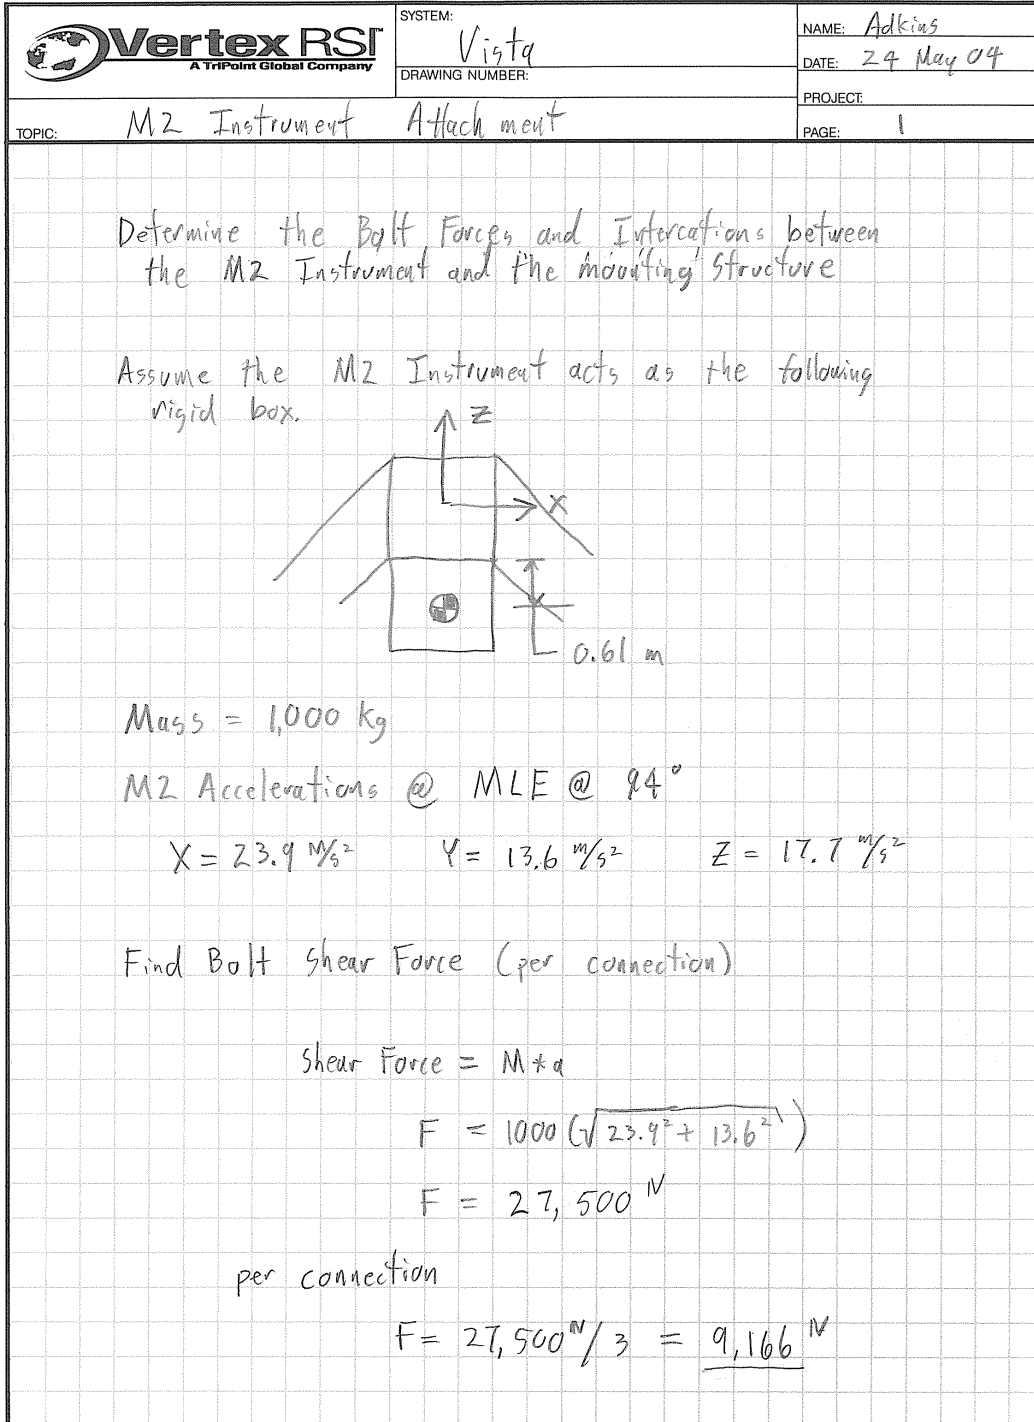 Vertex RSI
A TriPoint Global Company
SYSTEM:
Vista
DRAWING NUMBER:
NAME: Adkins
DATE: 24 May 04
PROJECT:
TOPIC: M2 Instrument Attachment
PAGE: 1
Determine the Bolt Forces and Intercations between
the M2 Instrument and the mounting structure
Assume the M2 Instrument acts as the following
rigid box.
Z
X
0.61 m
Mass = 1,000 kg
M2 Accelerations @ MLE @ 94°
X = 23.9 m/s² Y = 13.6 m/s² Z = 17.7 m/s²
Find Bolt Shear Force (per connection)
Shear Force = M*a
F = 1000 (√23.9² + 13.6²)
F = 27,500 N
per connection
F = 27,500 N / 3 = 9,166 N